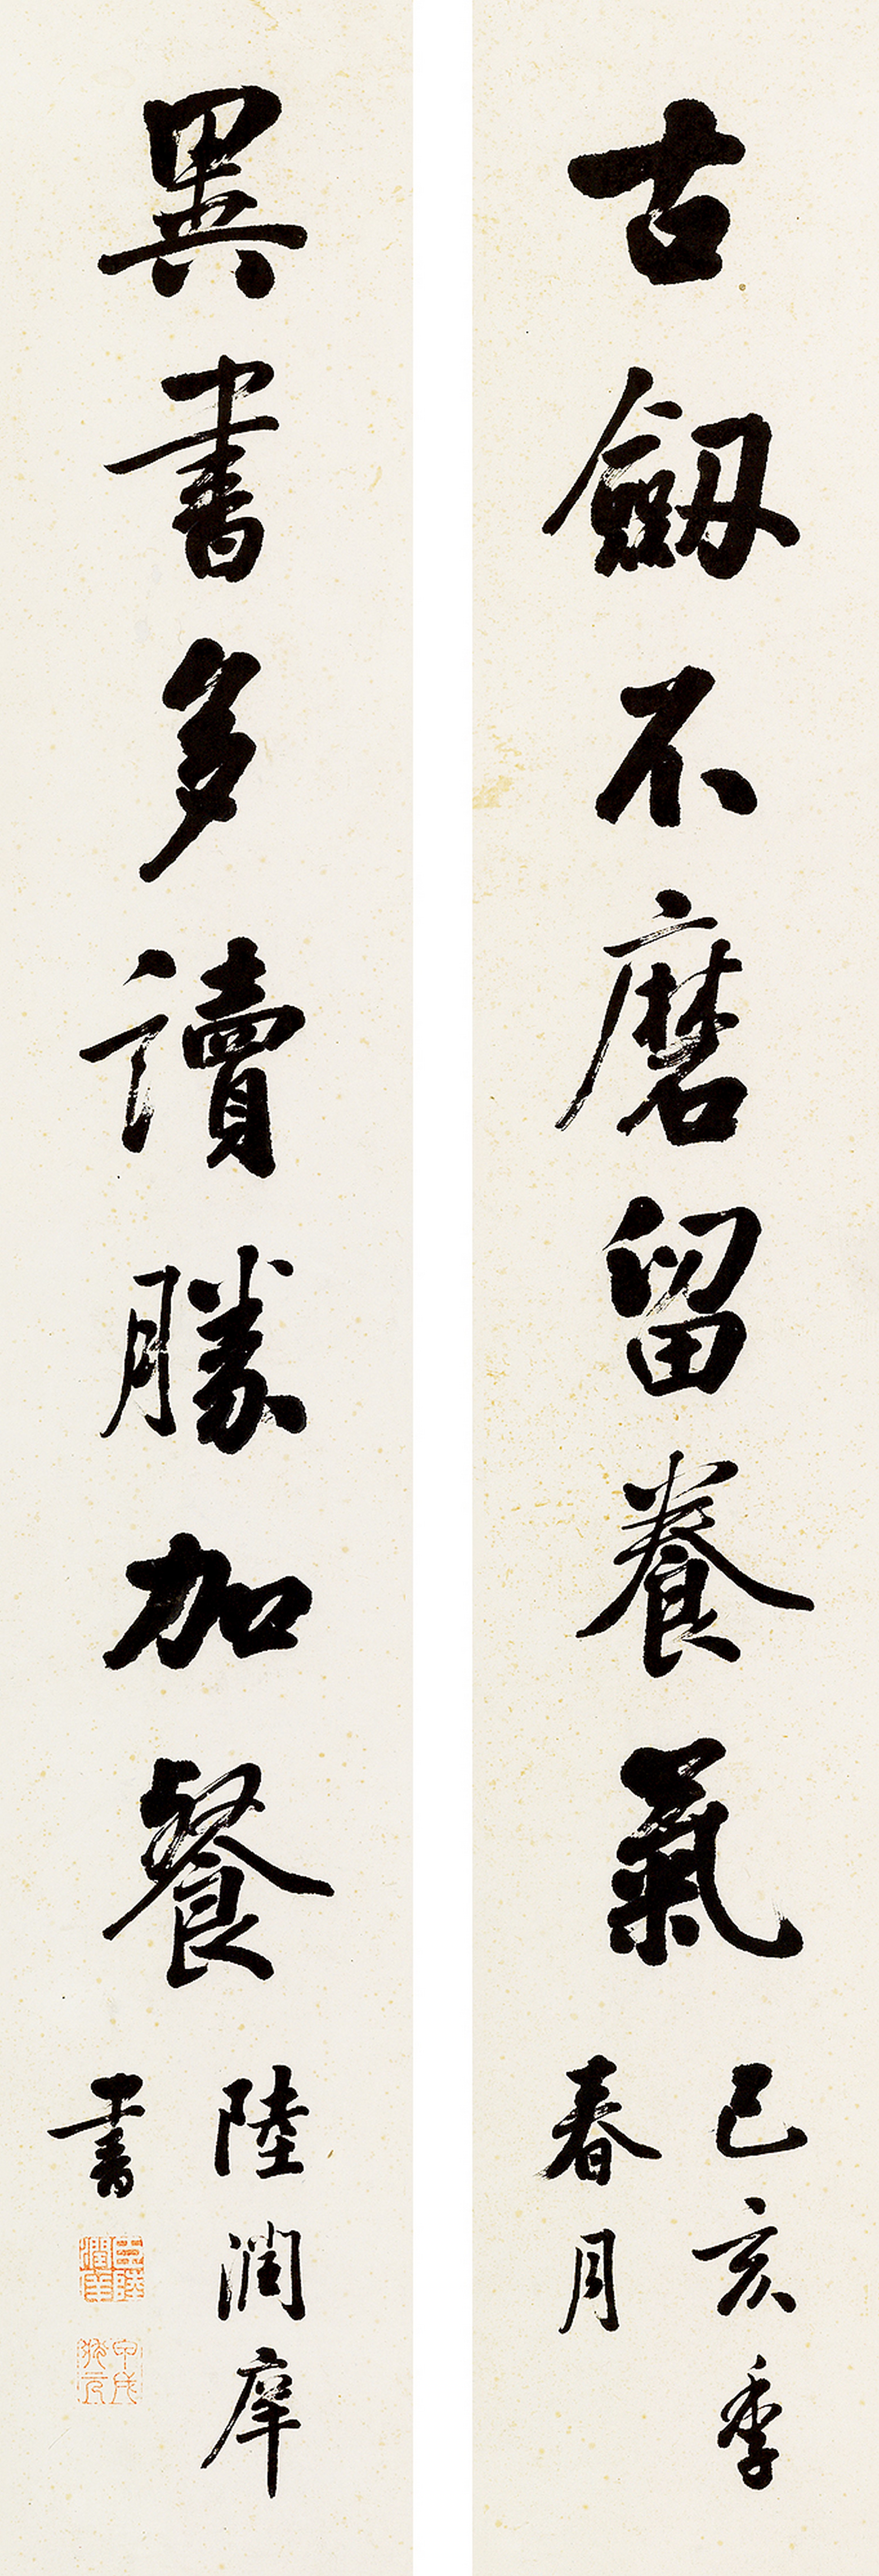 古劒不磨留養氣
己亥季
春月
異書多讀勝加餐
陸潤庠
書
臣陸潤庠
甲戌狀元